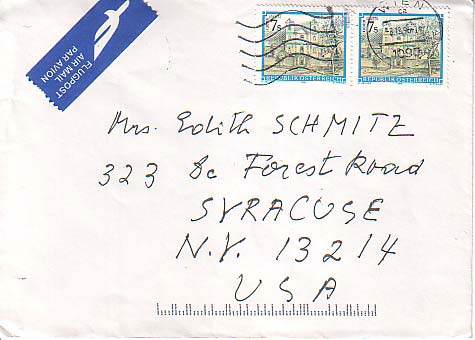 FLUGPOST
AIR MAIL
PAR AVION
7S
7S
WIEN
1090
REPUBLIK ÖSTERREICH
REPUBLIK ÖSTERREICH
Mrs. Edith SCHMITZ
323 De Forest Road
SYRACUSE
N.Y. 13214
USA